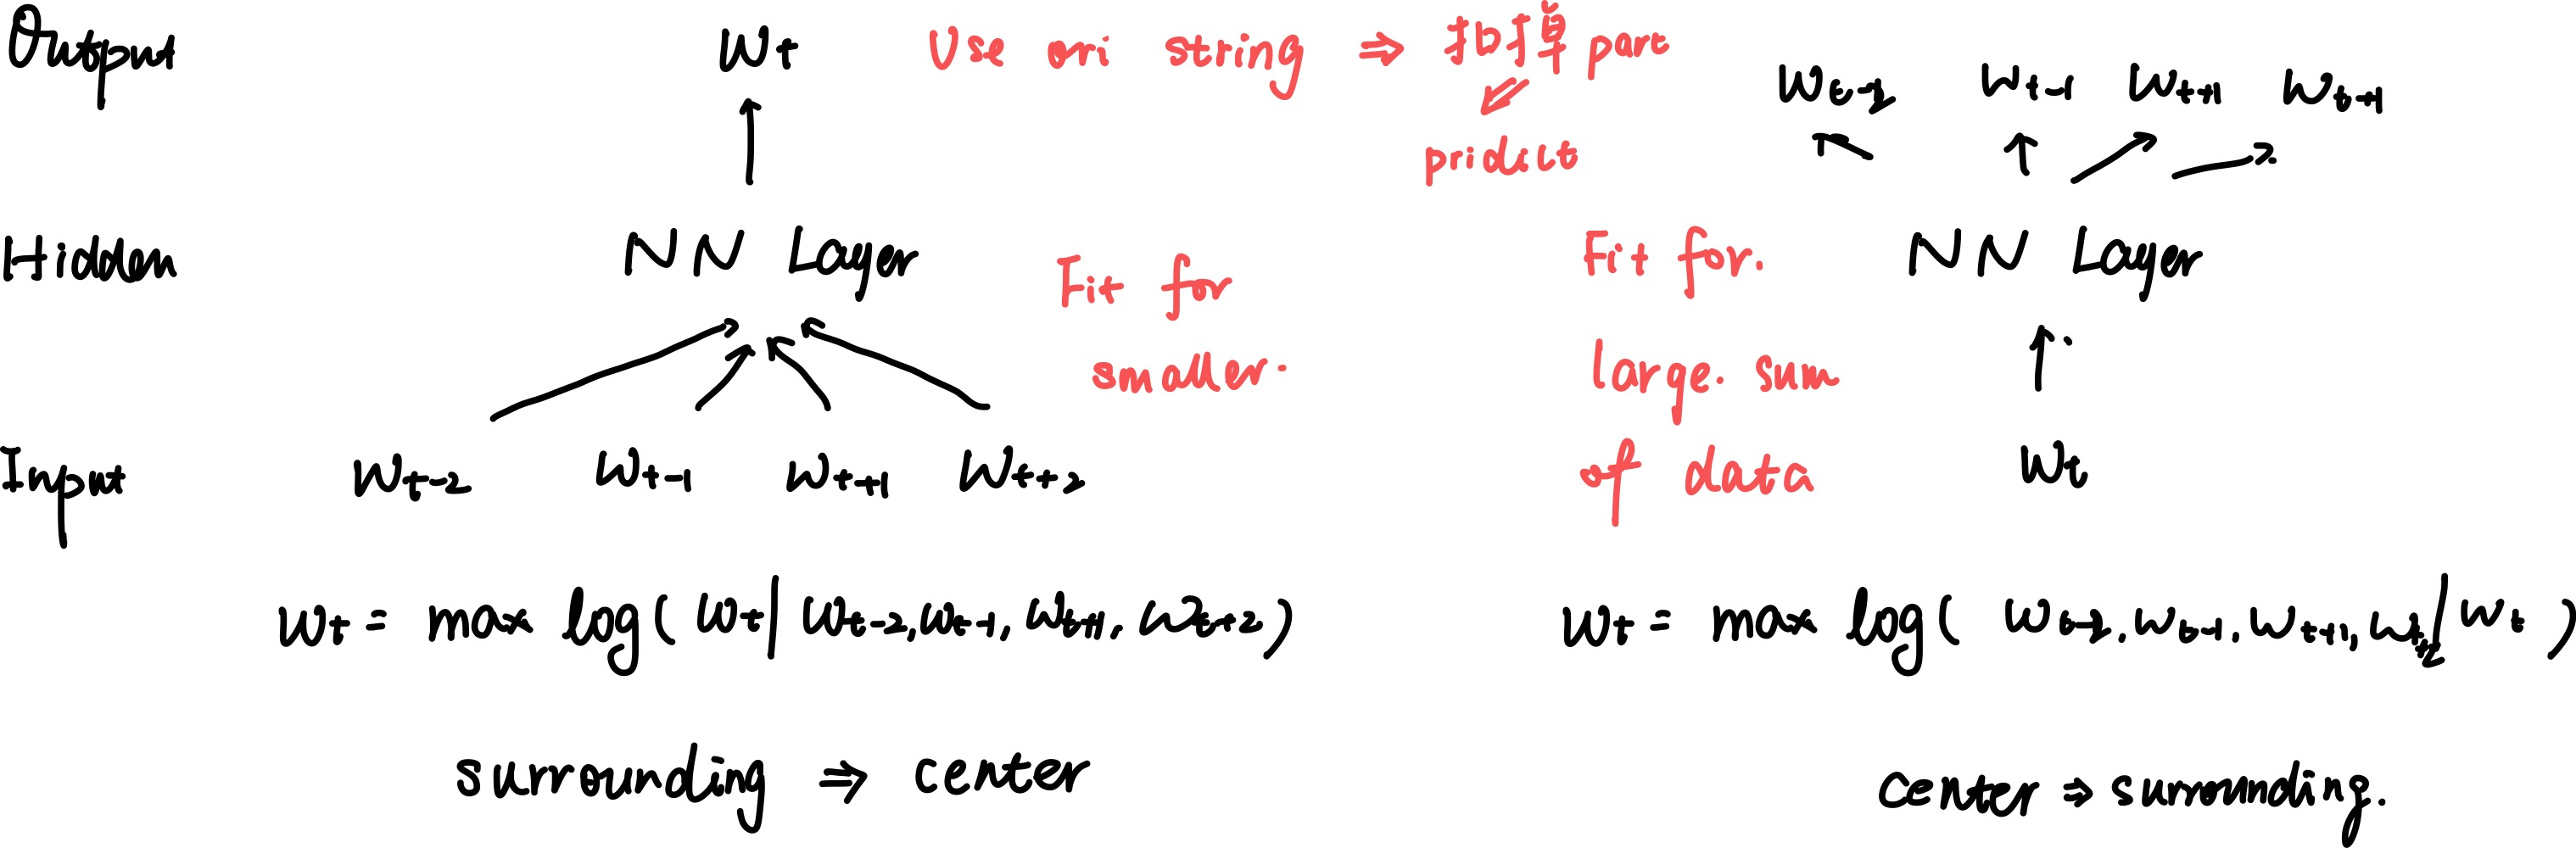 Output
Wt
Use ori string ⇒ 扣掉 part
pridict
Wt-2 Wt-1 Wt+1 Wt+1
Hidden
NN Layer
Fit for
smaller.
Fit for.
large. sum
of data
NN Layer
Input
Wt-2 Wt-1 Wt+1 Wt+2
Wt
Wt = max log( Wt | Wt-2, Wt-1, Wt+1, Wt+2 )
Wt = max log( Wt-2, Wt-1, Wt+1, Wt+2 | Wt )
surrounding ⇒ center
center ⇒ surrounding.